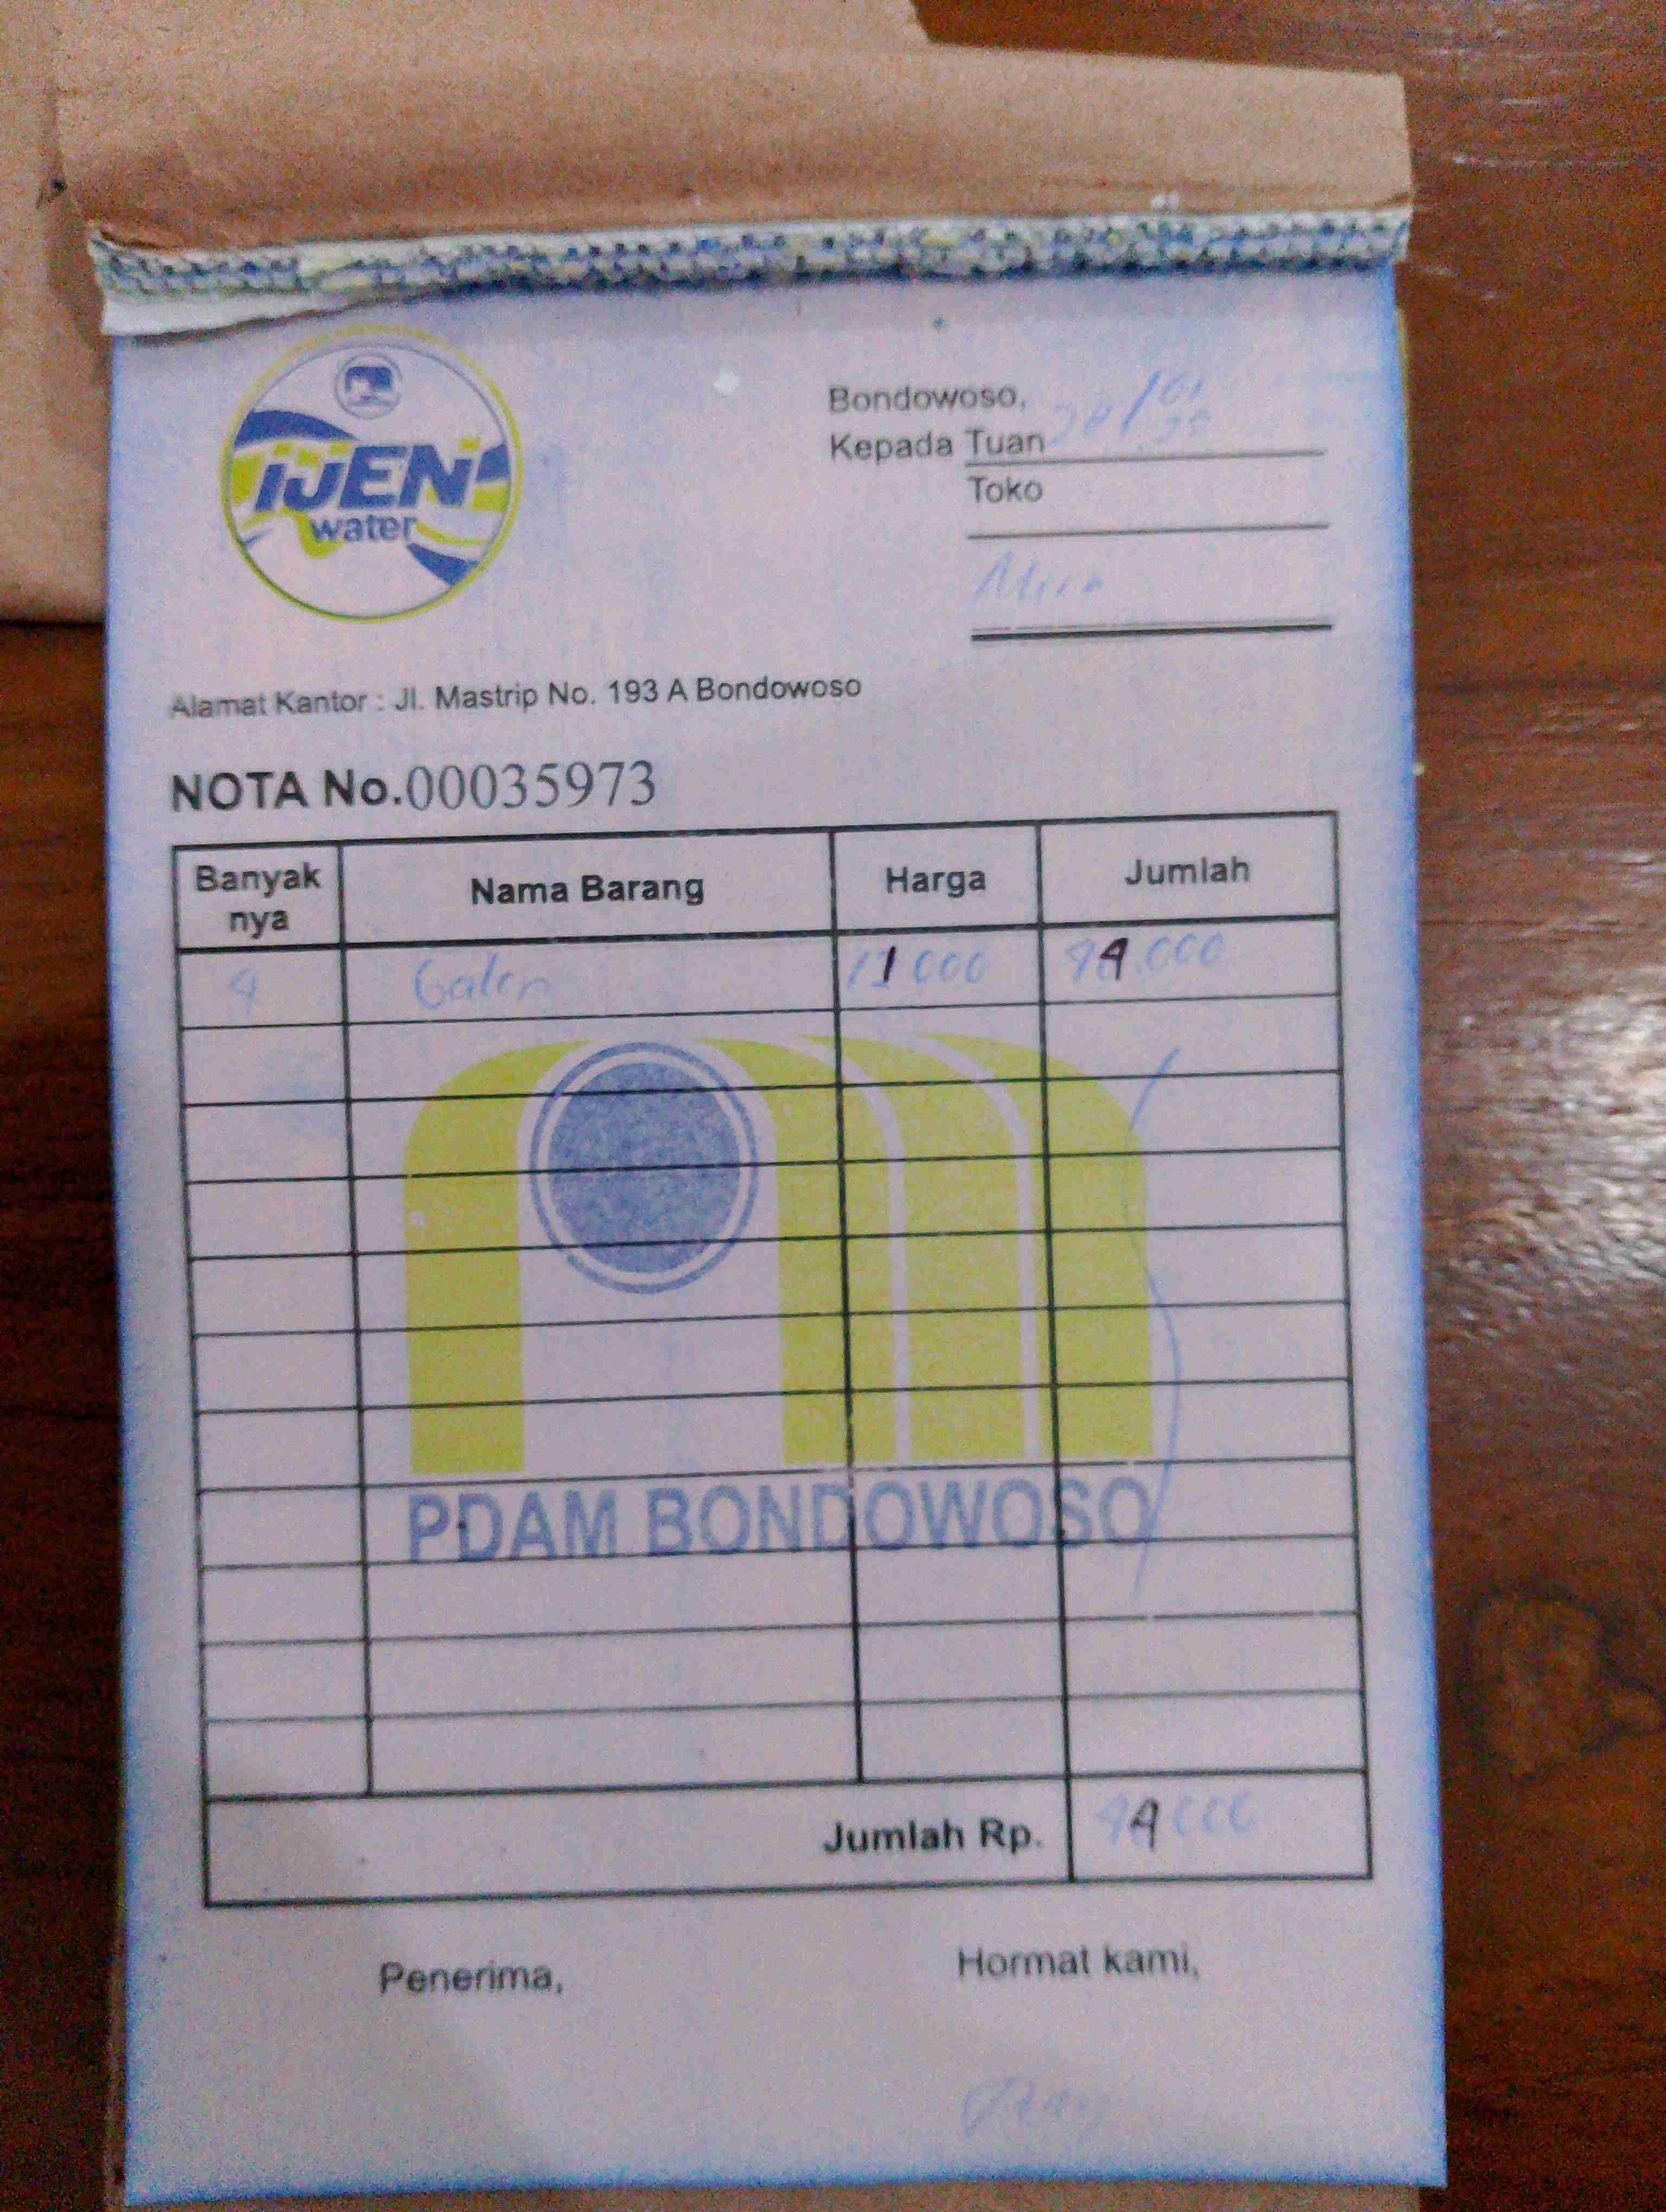 IJEN
water
Bondowoso,
Kepada Tuan
Toko
Alamat Kantor : Jl. Mastrip No. 193 A Bondowoso
NOTA No.00035973
Banyak nya Nama Barang Harga Jumlah
4 Galon 11000 44.000
PDAM BONDOWOSO
Jumlah Rp. 44000
Penerima, Hormat kami,